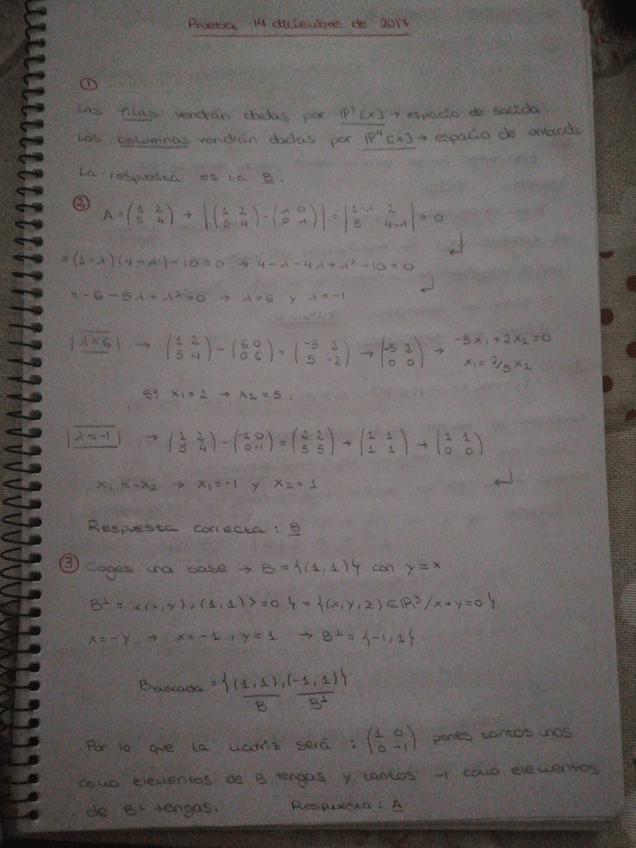 Prueba 14 diciembre de 2017
①
Las filas vendrán dadas por P³[x] → espacio de salida.
Las columnas vendrán dadas por P⁴[x] → espacio de entrada
La respuesta es la B.
② A = (1 2 / 5 4) → |(1 2 / 5 4) - (λ 0 / 0 λ)| = |1-λ 2 / 5 4-λ| = 0
= (1-λ)(4-λ) - 10 = 0 → 4 - λ - 4λ + λ² - 10 = 0
= -6 - 5λ + λ² = 0 → λ = 6 y λ = -1
|λ=6| → (1 2 / 5 4) - (6 0 / 0 6) = (-5 2 / 5 -2) → (-5 2 / 0 0) → -5x₁ + 2x₂ = 0
x₁ = 2/5 x₂
Si x₁ = 2 → x₂ = 5.
|λ=-1| → (1 2 / 5 4) - (-1 0 / 0 -1) = (2 2 / 5 5) → (1 1 / 1 1) → (1 1 / 0 0)
x₁ = -x₂ → x₁ = -1 y x₂ = 1
Respuesta correcta : B
③ Coges una base → B = {(1,1)} con y = x
B⊥ = <(x,y), (1,1)> = 0 } = {(x,y,z) ∈ R³ / x+y = 0 }
x = -y → x = -1, y = 1 → B⊥ = {-1,1}
Buscada = {(1,1), (-1,1)}
B B⊥
Por lo que la matriz será : (1 0 / 0 -1) pones tantos unos
como elementos de B tengas y tantos -1 como elementos
de B⊥ tengas. Respuesta : A